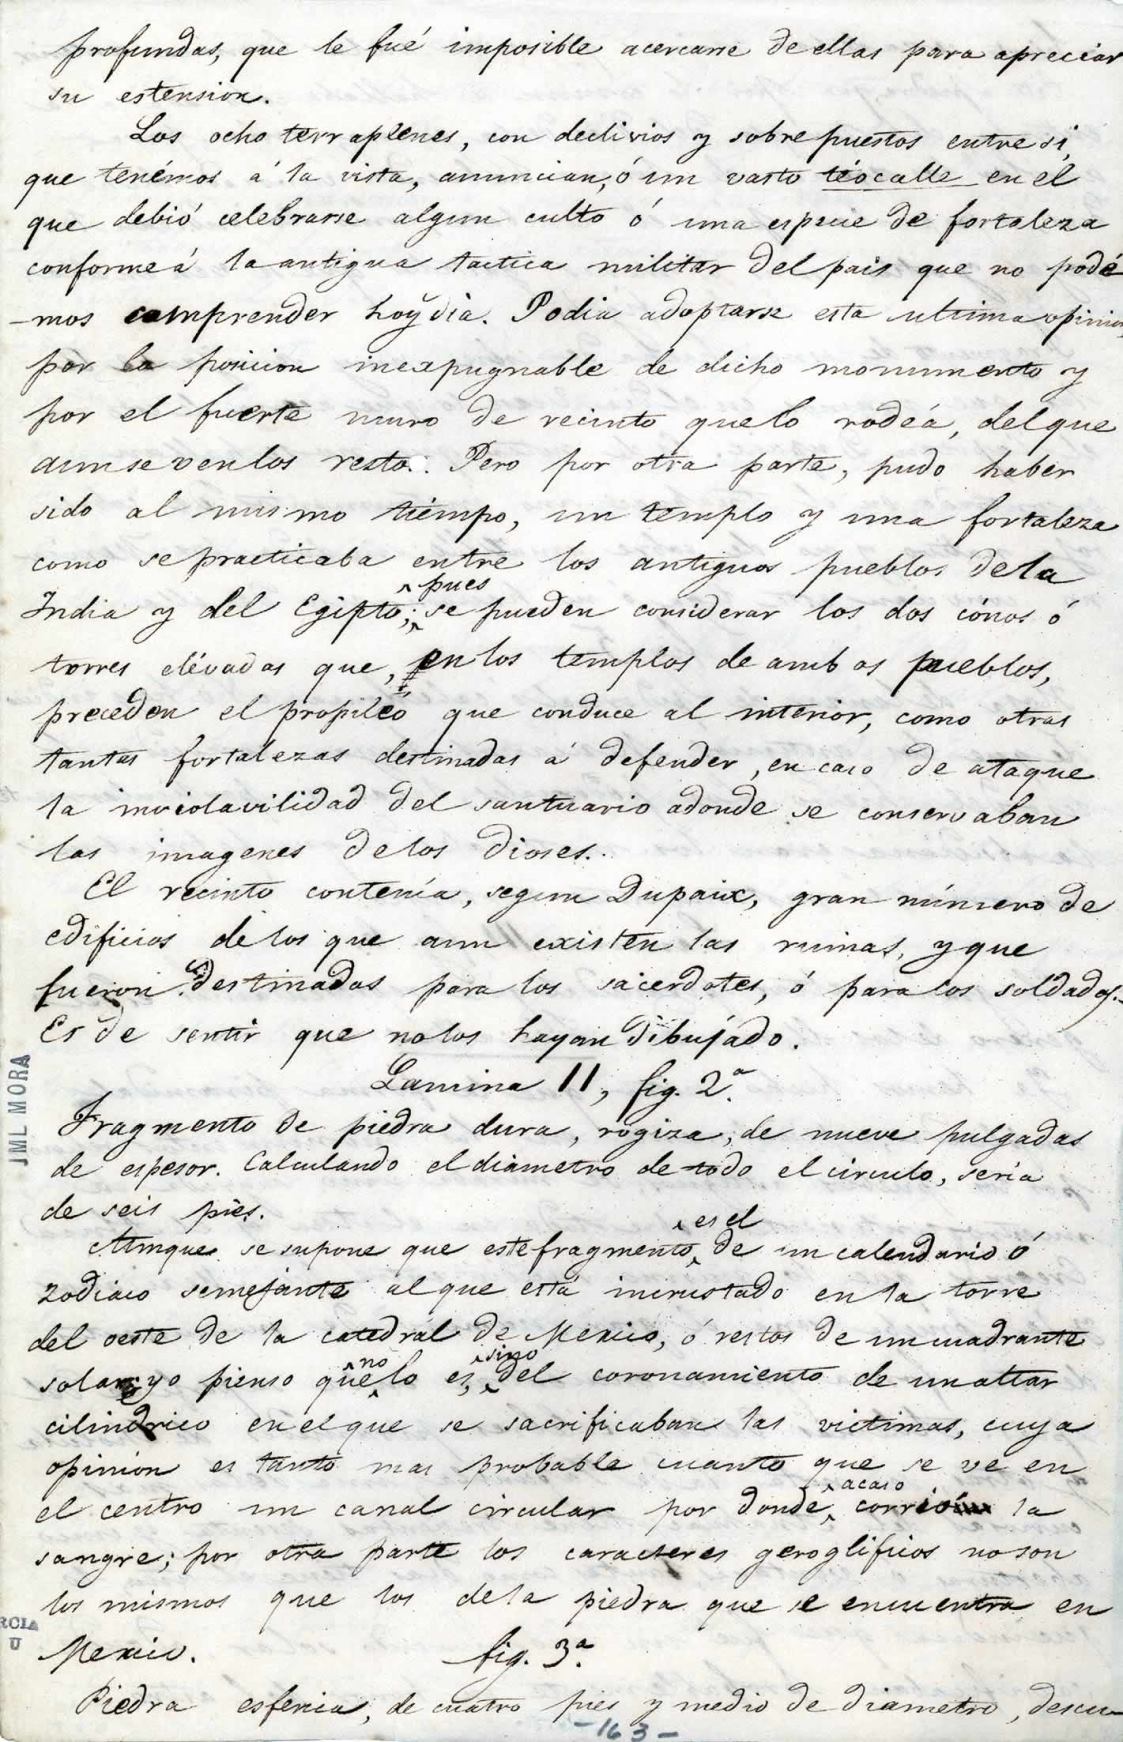 profundas, que le fué imposible acercarse de ellas para apreciar
su estension.
Los ocho terraplenes, con declivios y sobrepuestos entre si,
que tenémos á la vista, anuncian, ó un vasto téocalle en el
que debió celebrarse algun culto ó una especie de fortaleza
conforme á la antigua tactica militar del pais que no podé
-mos comprender hoy dia. Podia adoptarse esta ultima opinion,
por la posicion inexpugnable de dicho monumento y
por el fuerte muro de recinto que lo rodéa, del que
aun se ven los restos. Pero por otra parte, pudo haber
sido al mismo tiémpo, un templo y una fortaleza
como se practicaba entre los antiguos pueblos de la
India y del Egipto; pues se pueden considerar los dos cónos ó
torres elévadas que, en los templos de ambos pueblos,
preceden el propiléo que conduce al interior, como otras
tantas fortalezas destinadas á defender, en caso de ataque
la inviolavilidad del santuario adonde se conservaban
las imagenes de los dioses.
El recinto contenía, segun Dupaix, gran número de
edificios de los que aun existen las ruinas, y que
fueron destinados para los sacerdotes, ó para los soldados.-
Es de sentir que no los hayan dibujado.
Lamina 11, fig. 2.ª
Fragmento de piedra dura, rogiza, de nueve pulgadas
de espesor. Calculando el diámetro de todo el circulo, seria
de seis piés.
Aunque se supone que este fragmento es el de un calendario ó
zodiaco semejante al que está incrustado en la torre
del oeste de la catedrál de Mexico, ó restos de un cuadrante
solar, yo pienso que no lo es, sino del coronamiento de un altar
cilindrico en el que se sacrificaban las victimas, cuya
opinion es tanto mas probable cuanto que se ve en
el centro un canal circular por donde acaso corrió la
sangre; por otra parte los caracteres geroglificos no son
los mismos que los de la piedra que se encuentra en
Mexico.
fig. 3.ª
Piedra esferica, de cuatro pies y medio de diametro, descu-
-163-
JML MORA
RCIA
U